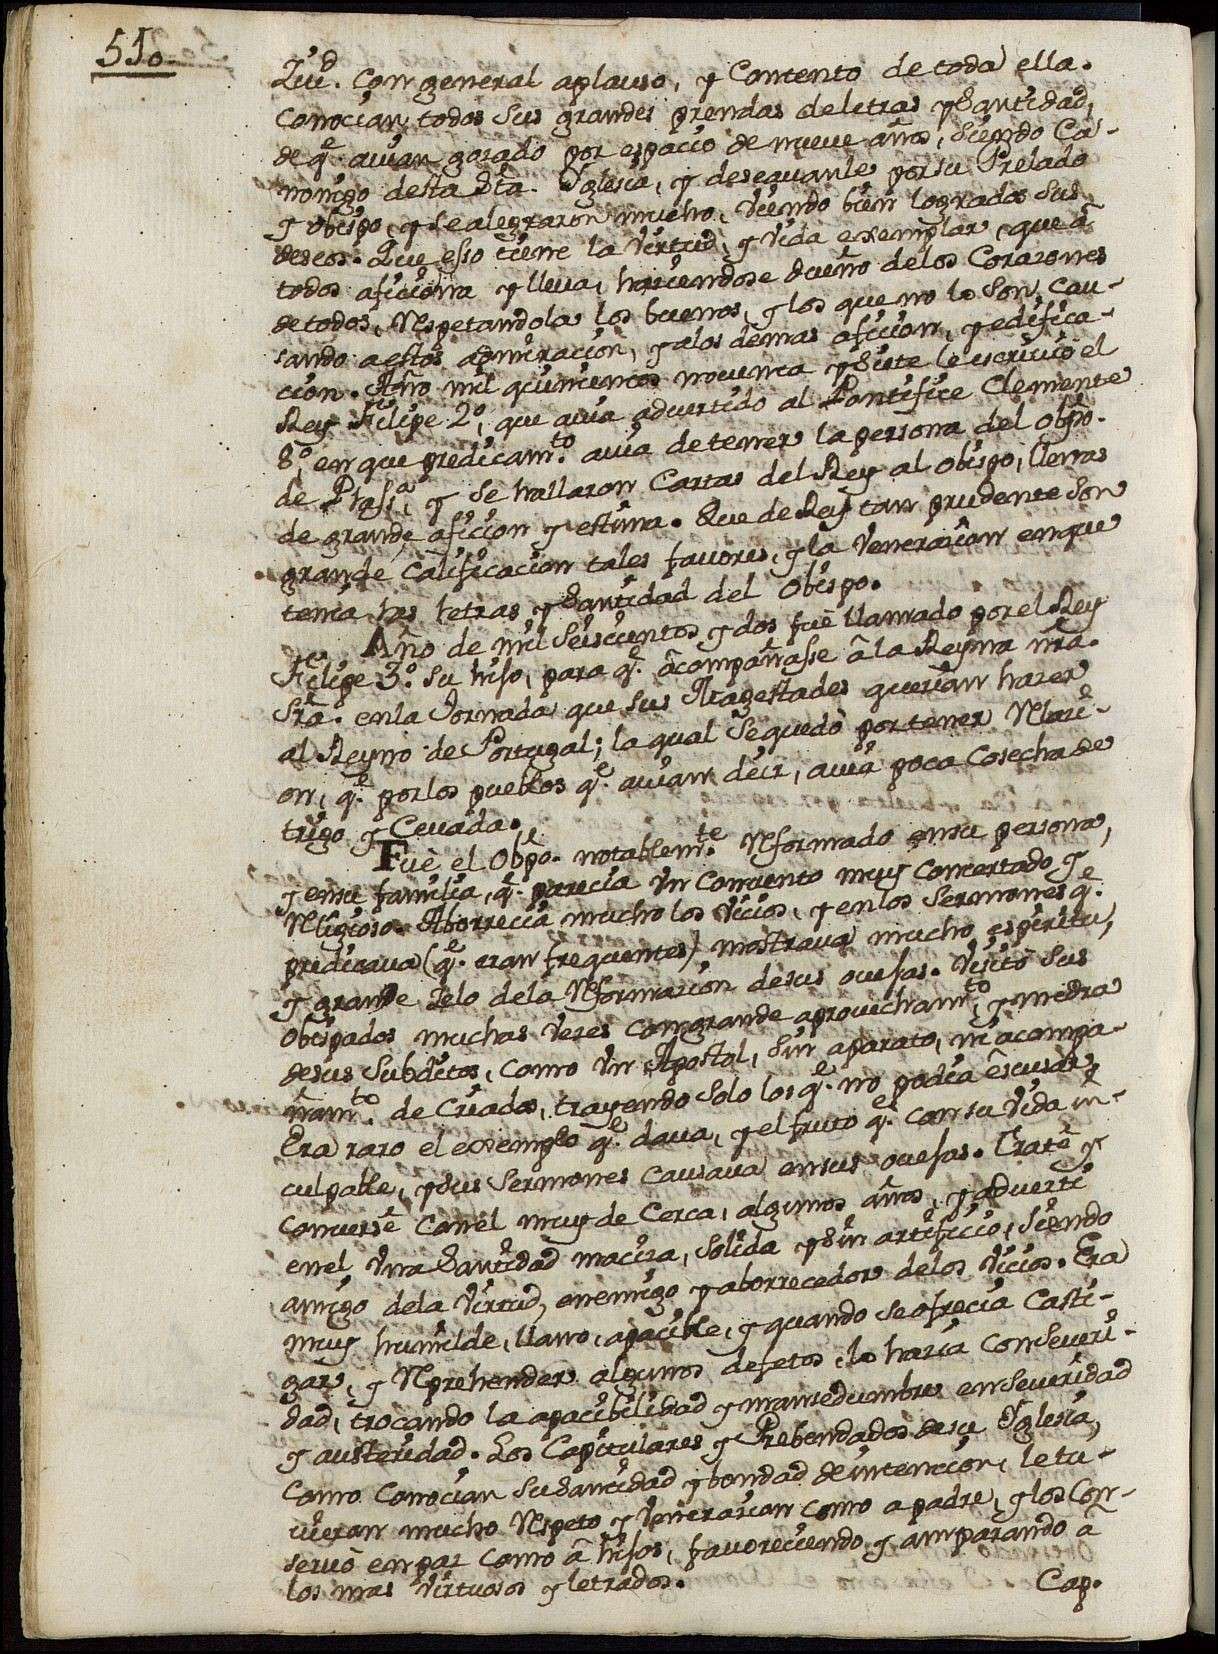 550
Ziud. Con general aplauso, y Contento de toda ella.
Conocian todos sus grandes prendas de letras y Santidad,
de q͂. auian gozado por espacio de nueue años, siendo Ca-
nonigo desta Sta. Yglesia, y deseauanle por su Prelado
y obispo, y se alegraron mucho, viendo bien logrados sus
deseos. Que esso tiene la virtud, y vida exemplar, que à
todos aficiona y lleua, haciendose dueño de los Corazones
de todos, Respetandola los buenos, y los que no lo son, Cau-
sando a estos admiracion, y a los demas aficion, y edifica-
cion. Año mil quinientos nouenta y Siete le escriuiò el
Rey Felipe 2.º, que auia aduertido al Pontifice Clemente
8.º, en que predicamto. auia de tener la persona del obpo.
de Plasa, y se hallaron Cartas del Rey al obispo, llenas
de grande aficion y estima. Que de Rey tan prudente Son
grande Calificacion tales fauores, y la Veneracion en que
tenia las letras, y Santidad del Obispo.
Año de mil Seiscientos y dos fuè llamado por el Rey
Felipe 3.º su hijo, para q͂. acompañasse à la Reyna nrã.
Srã. en la Jornada que sus Magestades querian hazer
al Reyno de Portugal; la qual Se quedò por tener Relaci-
on, q͂. por los pueblos q͂. auian de ir, auia poca Cosecha de
trigo y Ceuada.
Fuè el Obpo. notablemte. Reformado en su persona,
y en su familia, q͂. parecia vn Conuento muy Concertado y
Religioso. Aborrecia mucho los vicios, y en los Sermones q͂.
predicaua (q͂. eran frequentes) mostraua mucho espiritu,
y grande Zelo de la Reformacion de sus ouejas. Visitò sus
obispados muchas vezes con grande aprouechamto, y medra
de sus Subditos, Como vn Apostol, Sin aparato, ni acompa-
ñamto. de Criados, trayendo Solo los q͂. no podia escusar,
Era raro el exemplo q͂. daua, y el fruto q͂. con su vida in-
culpable, y sus Sermones Causaua en sus ouejas. Tratè y
Conuersè con el muy de Cerca, algunos años, y aduerti
en el vna Santidad maciza, Solida y Sin artificio, Siendo
amigo de la Virtud, enemigo y aborrecedor de los vicios. Era
muy humilde, llano, apacible, y quando se ofrecia Casti-
gar, y Reprehender algunos defetos, lo hacia Con Seueri-
dad, trocando la apacibilidad y mansedumbre en Seueridad
y austeridad. Los Capitulares y Prebendados de su Yglesia,
Como Conocian Su Santidad y bondad de intencion, le tu-
uieran mucho Respeto y Veneracion Como a padre, y los Con-
seruò en paz Como à hijos, fauoreciendo y amparando à
los mas Virtuosos y letrados.
Cap.